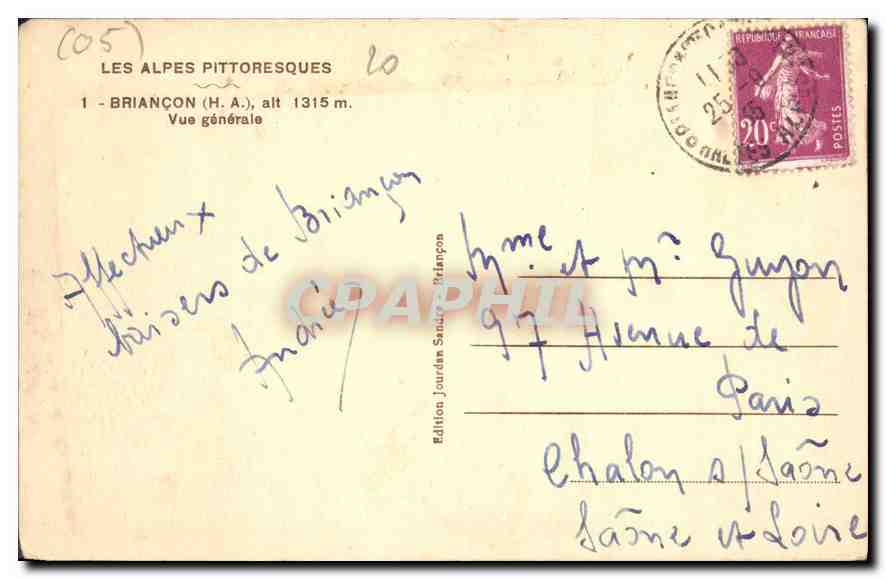 (05)
LES ALPES PITTORESQUES
20
1 - BRIANÇON (H. A.), alt 1315 m.
Vue générale
RÉPUBLIQUE FRANÇAISE
20c
POSTES
11
25
Affectueux
baisers de Briançon
André
Edition Jourdan Sandre Briançon
CPAPHIL
Mme et Mr. Guyon
97 Avenue de
Paris
Chalon s/Saône
Saône et Loire